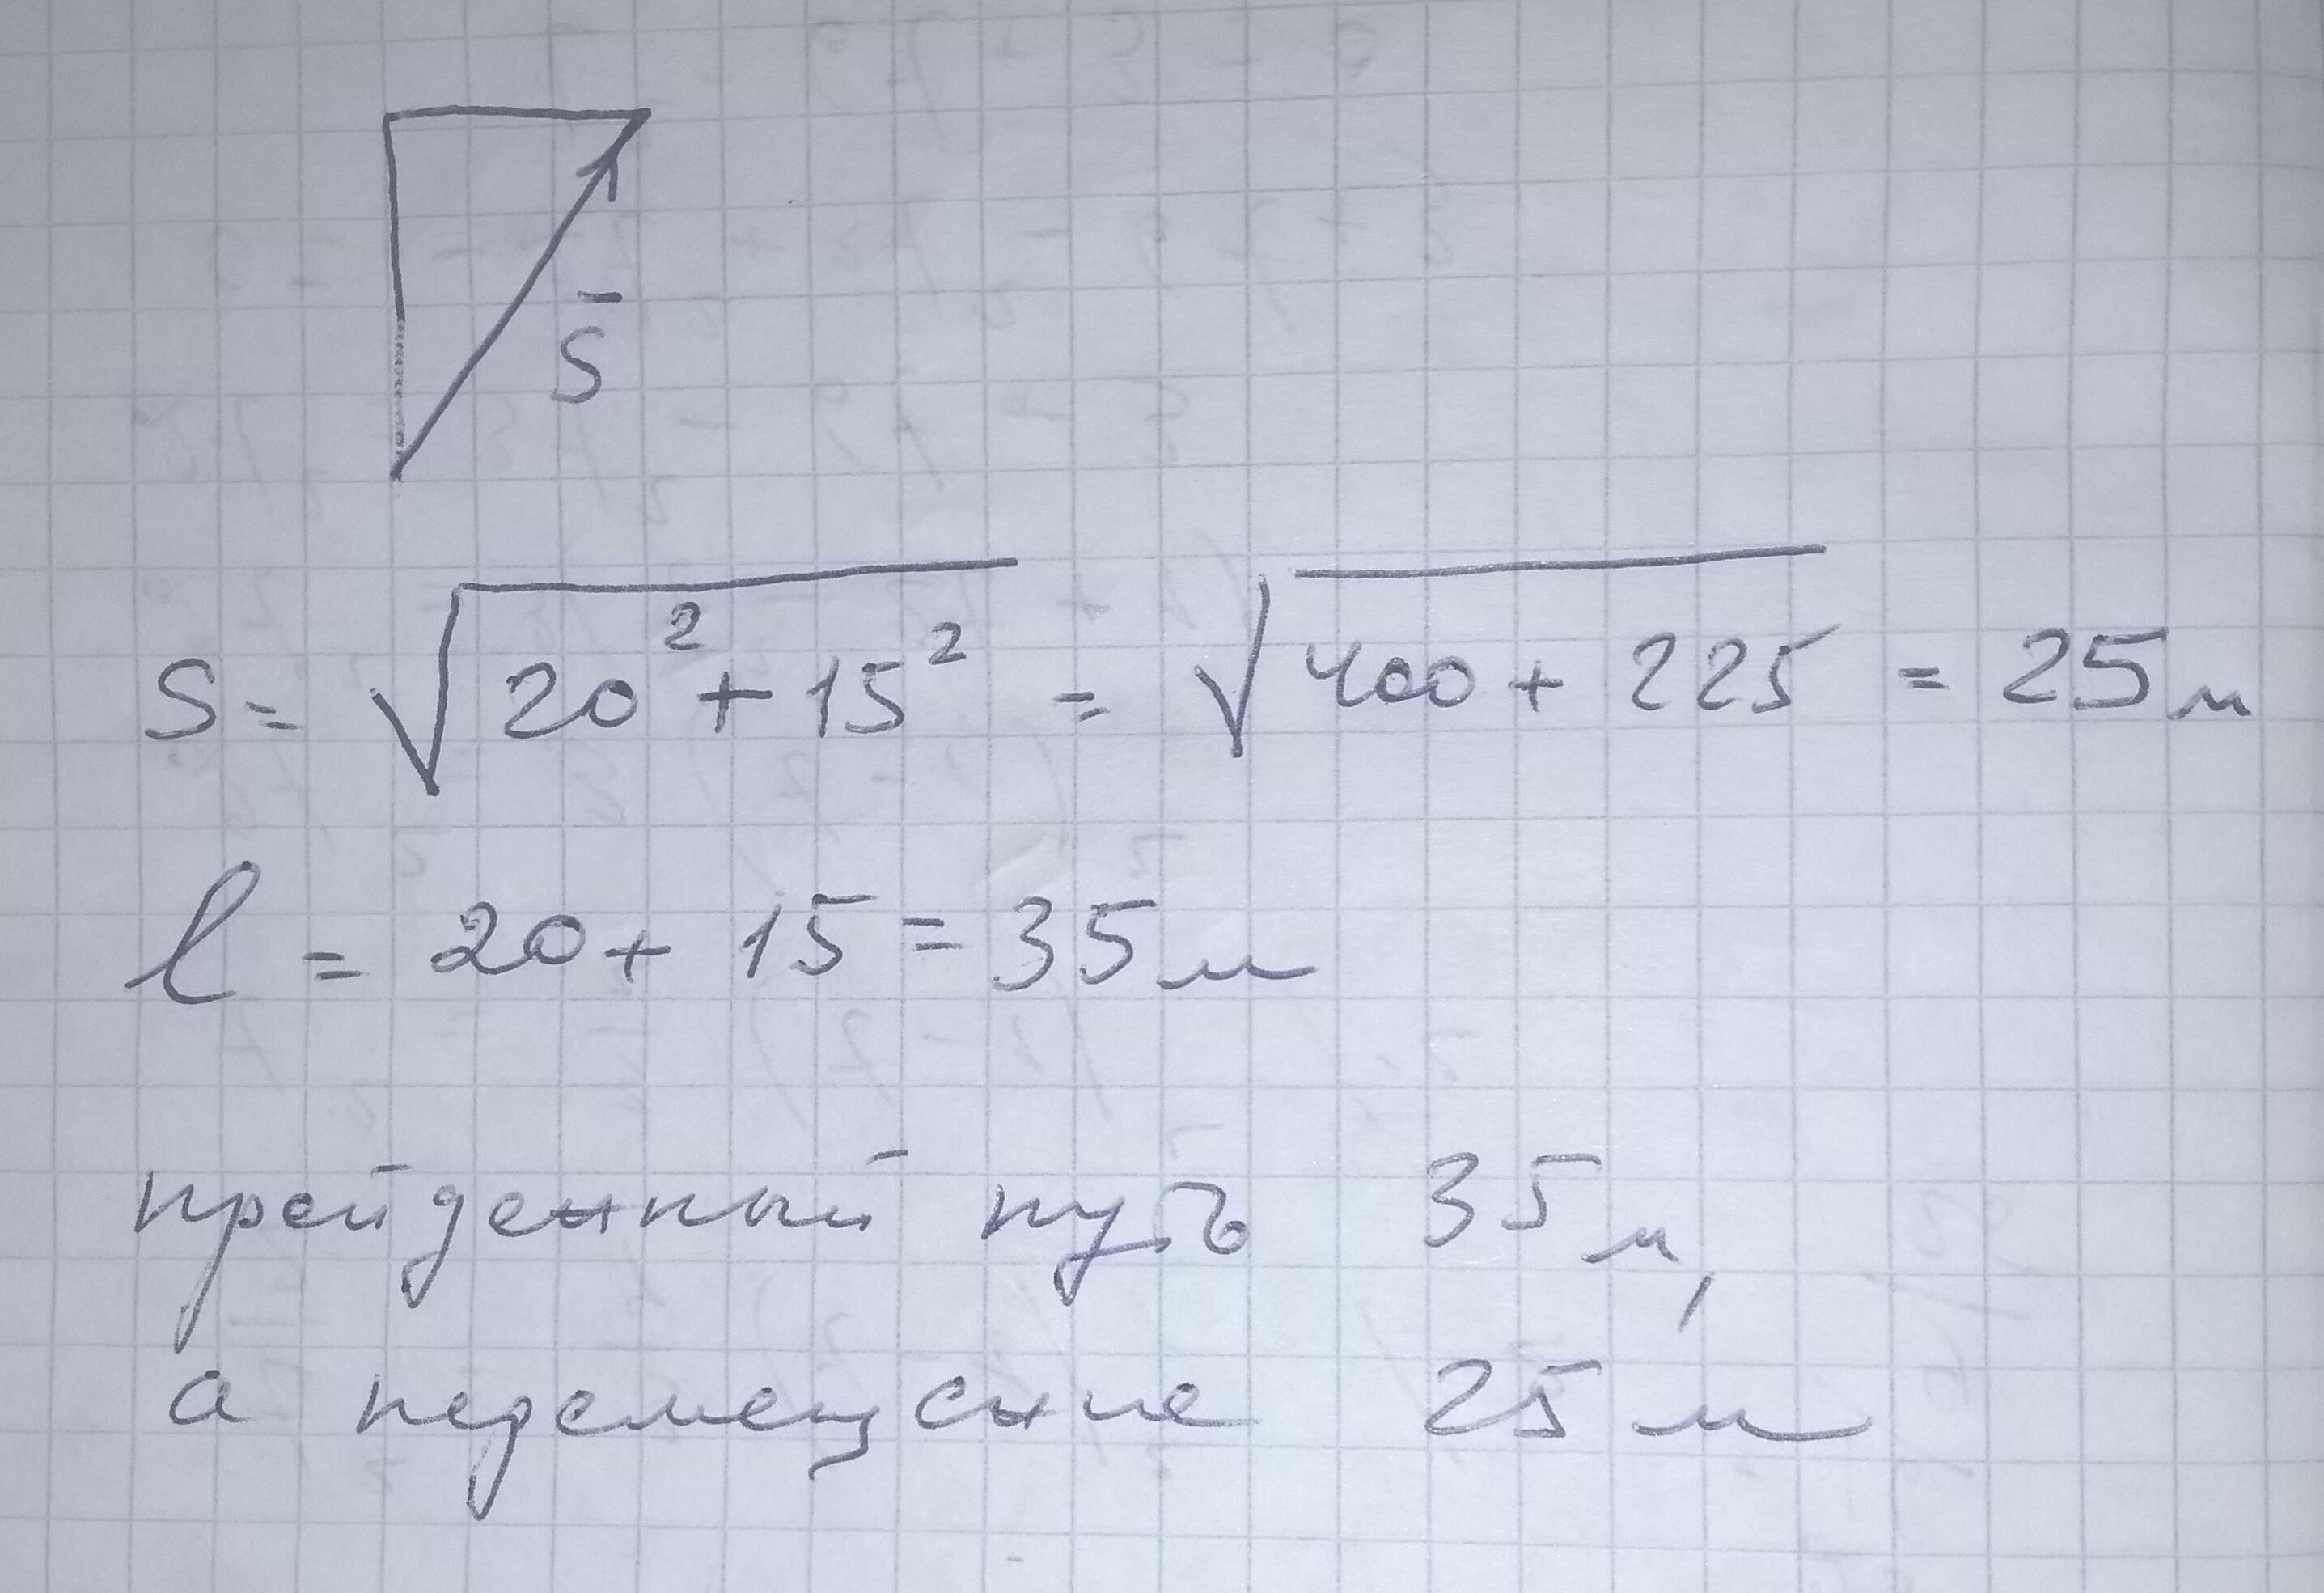 s̄
S = √20² + 15² = √400 + 225 = 25 м
l = 20 + 15 = 35 м
пройденный путь 35 м,
а перемещение 25 м